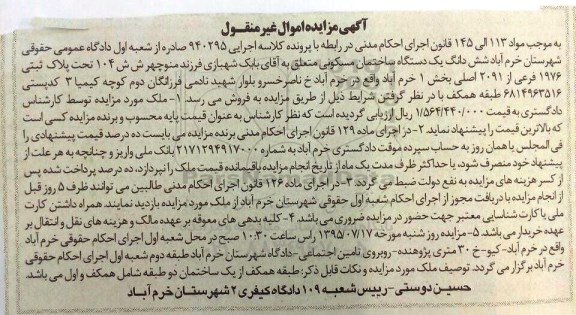 آگهی مزایده اموال غیر منقول
به موجب مواد ۱۱۳ الی ۱۴۵ قانون اجرای احکام مدنی در رابطه با پرونده کلاسه اجرایی ۹۴۰۲۹۵ صادره از شعبه اول دادگاه عمومی حقوقی
شهرستان خرم آباد شش دانگ یک دستگاه ساختمان مسکونی متعلق به آقای بابک شهبازی فرزند منوچهر ش ش ۱۰۴ تحت پلاک ثبتی
۱۹۷۶ فرعی از ۲۰۹۱ اصلی بخش ۱ خرم آباد واقع در خرم آباد خ ناصرخسرو بلوار شهید نادمی فرزانگان دوم کوچه کیمیا ۳ کدپستی
۶۸۱۴۹۶۳۵۱۶ طبقه همکف با در نظر گرفتن شرایط ذیل از طریق مزایده به فروش می رسد. ۱- ملک مورد مزایده توسط کارشناس
دادگستری به قیمت ۱/۵۶۴/۴۴۰/۰۰۰ ریال ارزیابی گردیده است که نظر کارشناس به عنوان قیمت پایه محسوب و برنده مزایده کسی است
که بالاترین قیمت را پیشنهاد نماید ۲- در اجرای ماده ۱۲۹ قانون اجرای احکام مدنی برنده مزایده می بایست ده درصد قیمت پیشنهادی را
فی المجلس یا همان روز به حساب سپرده موقت دادگستری خرم آباد به شماره ۲۱۷۱۲۹۴۹۱۷۰۰۰ بانک ملی واریز و چنانچه به هر علت از
پیشنهاد خود منصرف شود، یا حداکثر ظرف مدت یک ماه از تاریخ انجام مزایده باقیمانده قیمت ملک را نپردازد، ده درصد پرداخت شده پس
از کسر هزینه های مزایده به نفع دولت ضبط می گردد. ۳- در اجرای ماده ۱۲۶ قانون اجرای احکام مدنی طالبین می توانند ظرف ۵ روز قبل
از انجام مزایده با دریافت مجوز از اجرای احکام شعبه اول حقوقی شهرستان خرم آباد از ملک مورد مزایده بازدید نمایند. همراه داشتن کارت
ملی یا کارت شناسایی معتبر جهت حضور در مزایده ضروری می باشد. ۴- کلیه بدهی های معوقه بر عهده مالک و هزینه های نقل و انتقال بر
عهده خریدار می باشد. ۵- مزایده روز شنبه مورخه ۱۳۹۵/۰۷/۱۷ راس ساعت ۱۰:۳۰ صبح در محل شعبه اول اجرای احکام حقوقی خرم آباد
واقع در خرم آباد-کیو-خ ۳۰ متری پژوهنده-روبروی تامین اجتماعی-دادگاه شهرستان خرم آباد طبقه دوم شعبه اول اجرای احکام حقوقی
خرم آباد برگزار می گردد. توصیف ملک مورد مزایده و نکات قابل ذکر: طبقه همکف از یک ساختمان دو طبقه شامل همکف و اول می باشد.
حسین دوستی-رییس شعبه ۱۰۹ دادگاه کیفری ۲ شهرستان خرم آباد